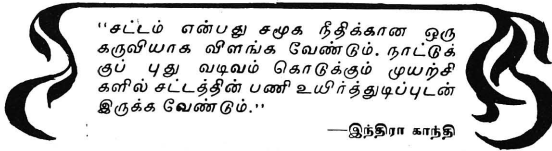 “சட்டம் என்பது சமூக நீதிக்கான ஒரு
கருவியாக விளங்க வேண்டும். நாட்டுக்
குப் புது வடிவம் கொடுக்கும் முயற்சி
களில் சட்டத்தின் பணி உயிர்த்துடிப்புடன்
இருக்க வேண்டும்.”
—இந்திரா காந்தி